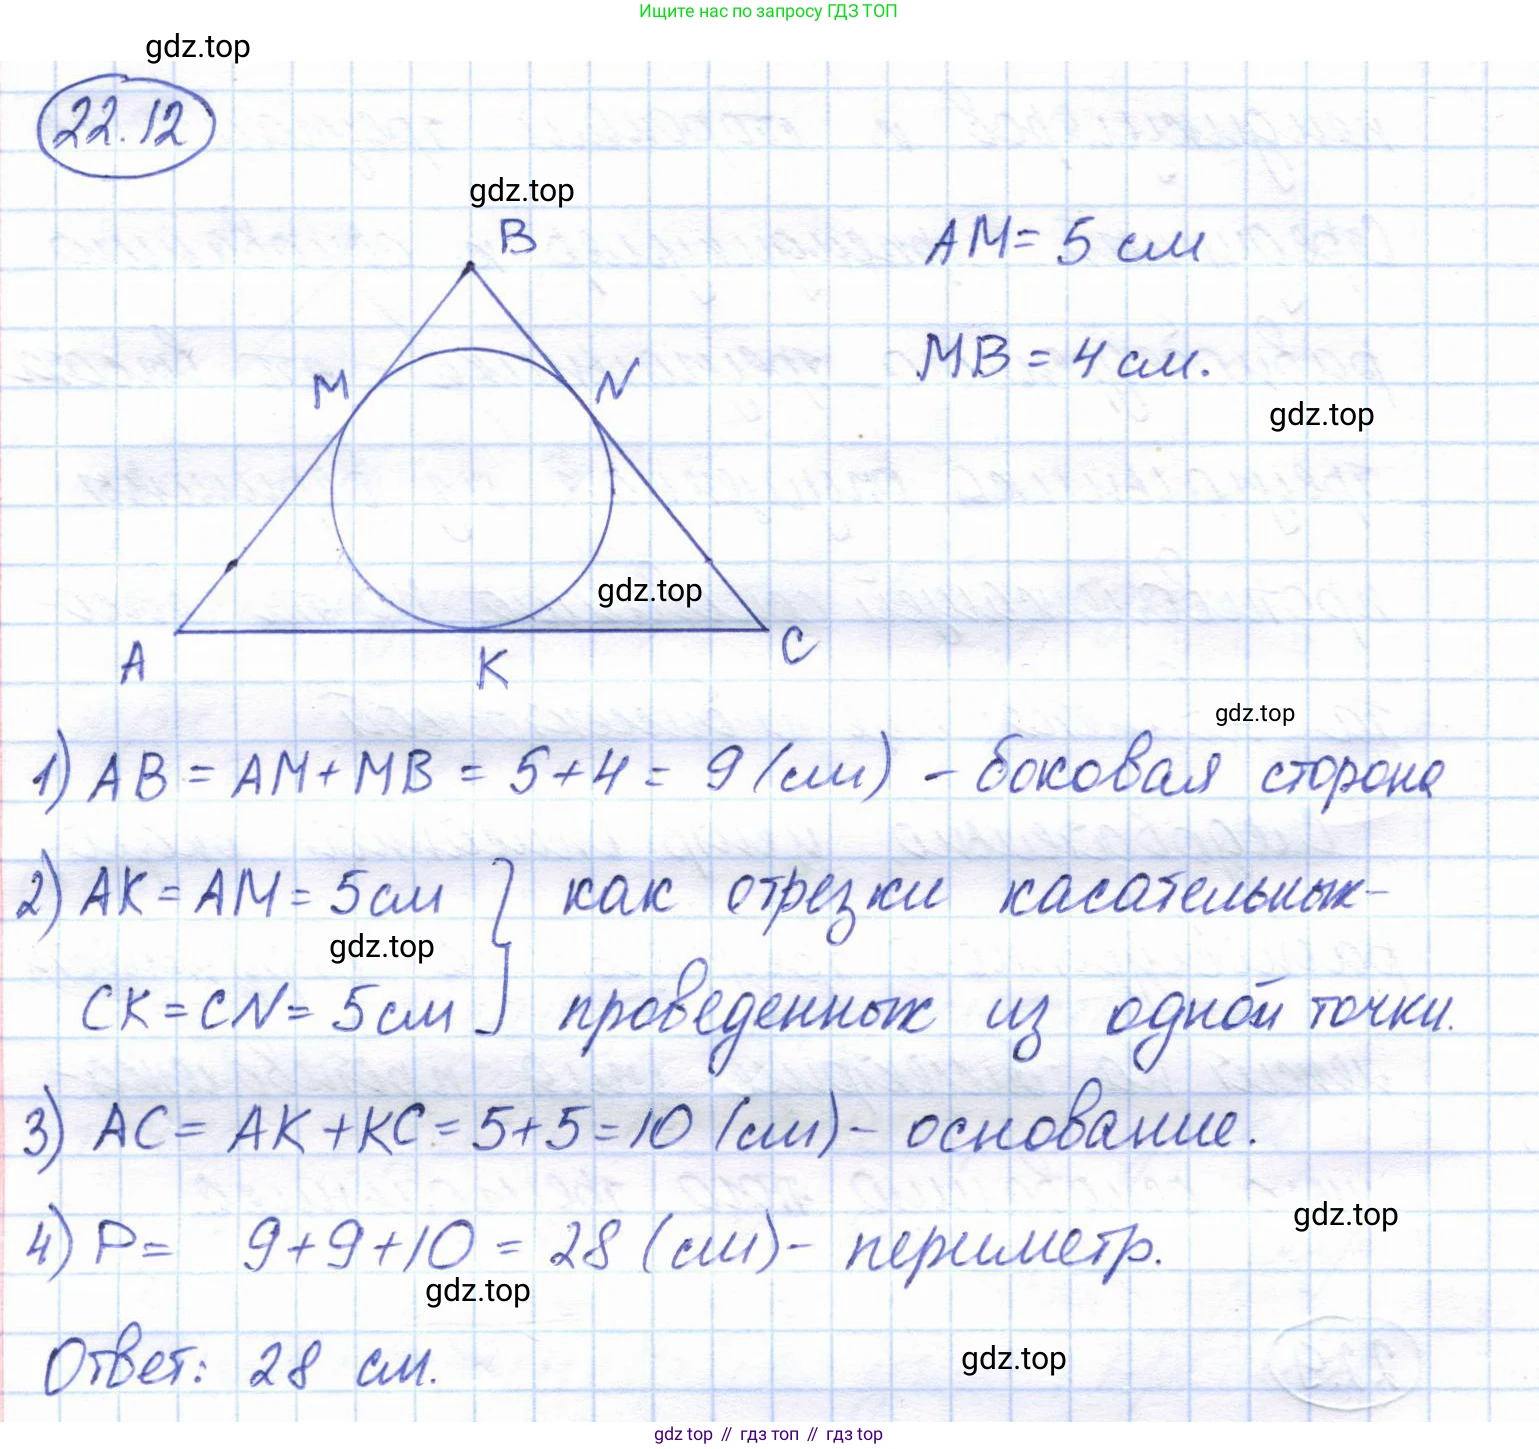 Ищите нас по запросу ГДЗ ТОП
gdz.top
22.12
gdz.top
B
AM = 5 см
MB = 4 см.
M
N
gdz.top
gdz.top
A
K
C
gdz.top
1) AB = AM + MB = 5 + 4 = 9 (см) - боковая сторона
2) AK = AM = 5 см } как отрезки касательных-
gdz.top
CK = CN = 5 см } проведенных из одной точки.
3) AC = AK + KC = 5 + 5 = 10 (см) - основание.
gdz.top
4) P = 9 + 9 + 10 = 28 (см) - периметр.
gdz.top
Ответ: 28 см.
gdz.top
gdz top // гдз топ // гдз top